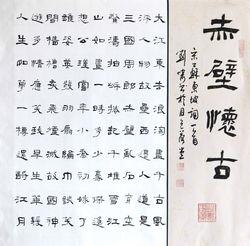 赤壁懷古
宋蘇東坡詞一首
大江東去浪淘盡千古風
流人物故壘西邊人道是
三國周郎赤壁亂石穿空
驚濤拍岸捲起千堆雪江
山如畫一時多少豪傑遙
想公瑾當年小喬初嫁了
雄姿英發羽扇綸巾談笑
間檣櫓灰飛煙滅故國神
遊多情應笑我早生華髮
人生如夢一尊還酹江月